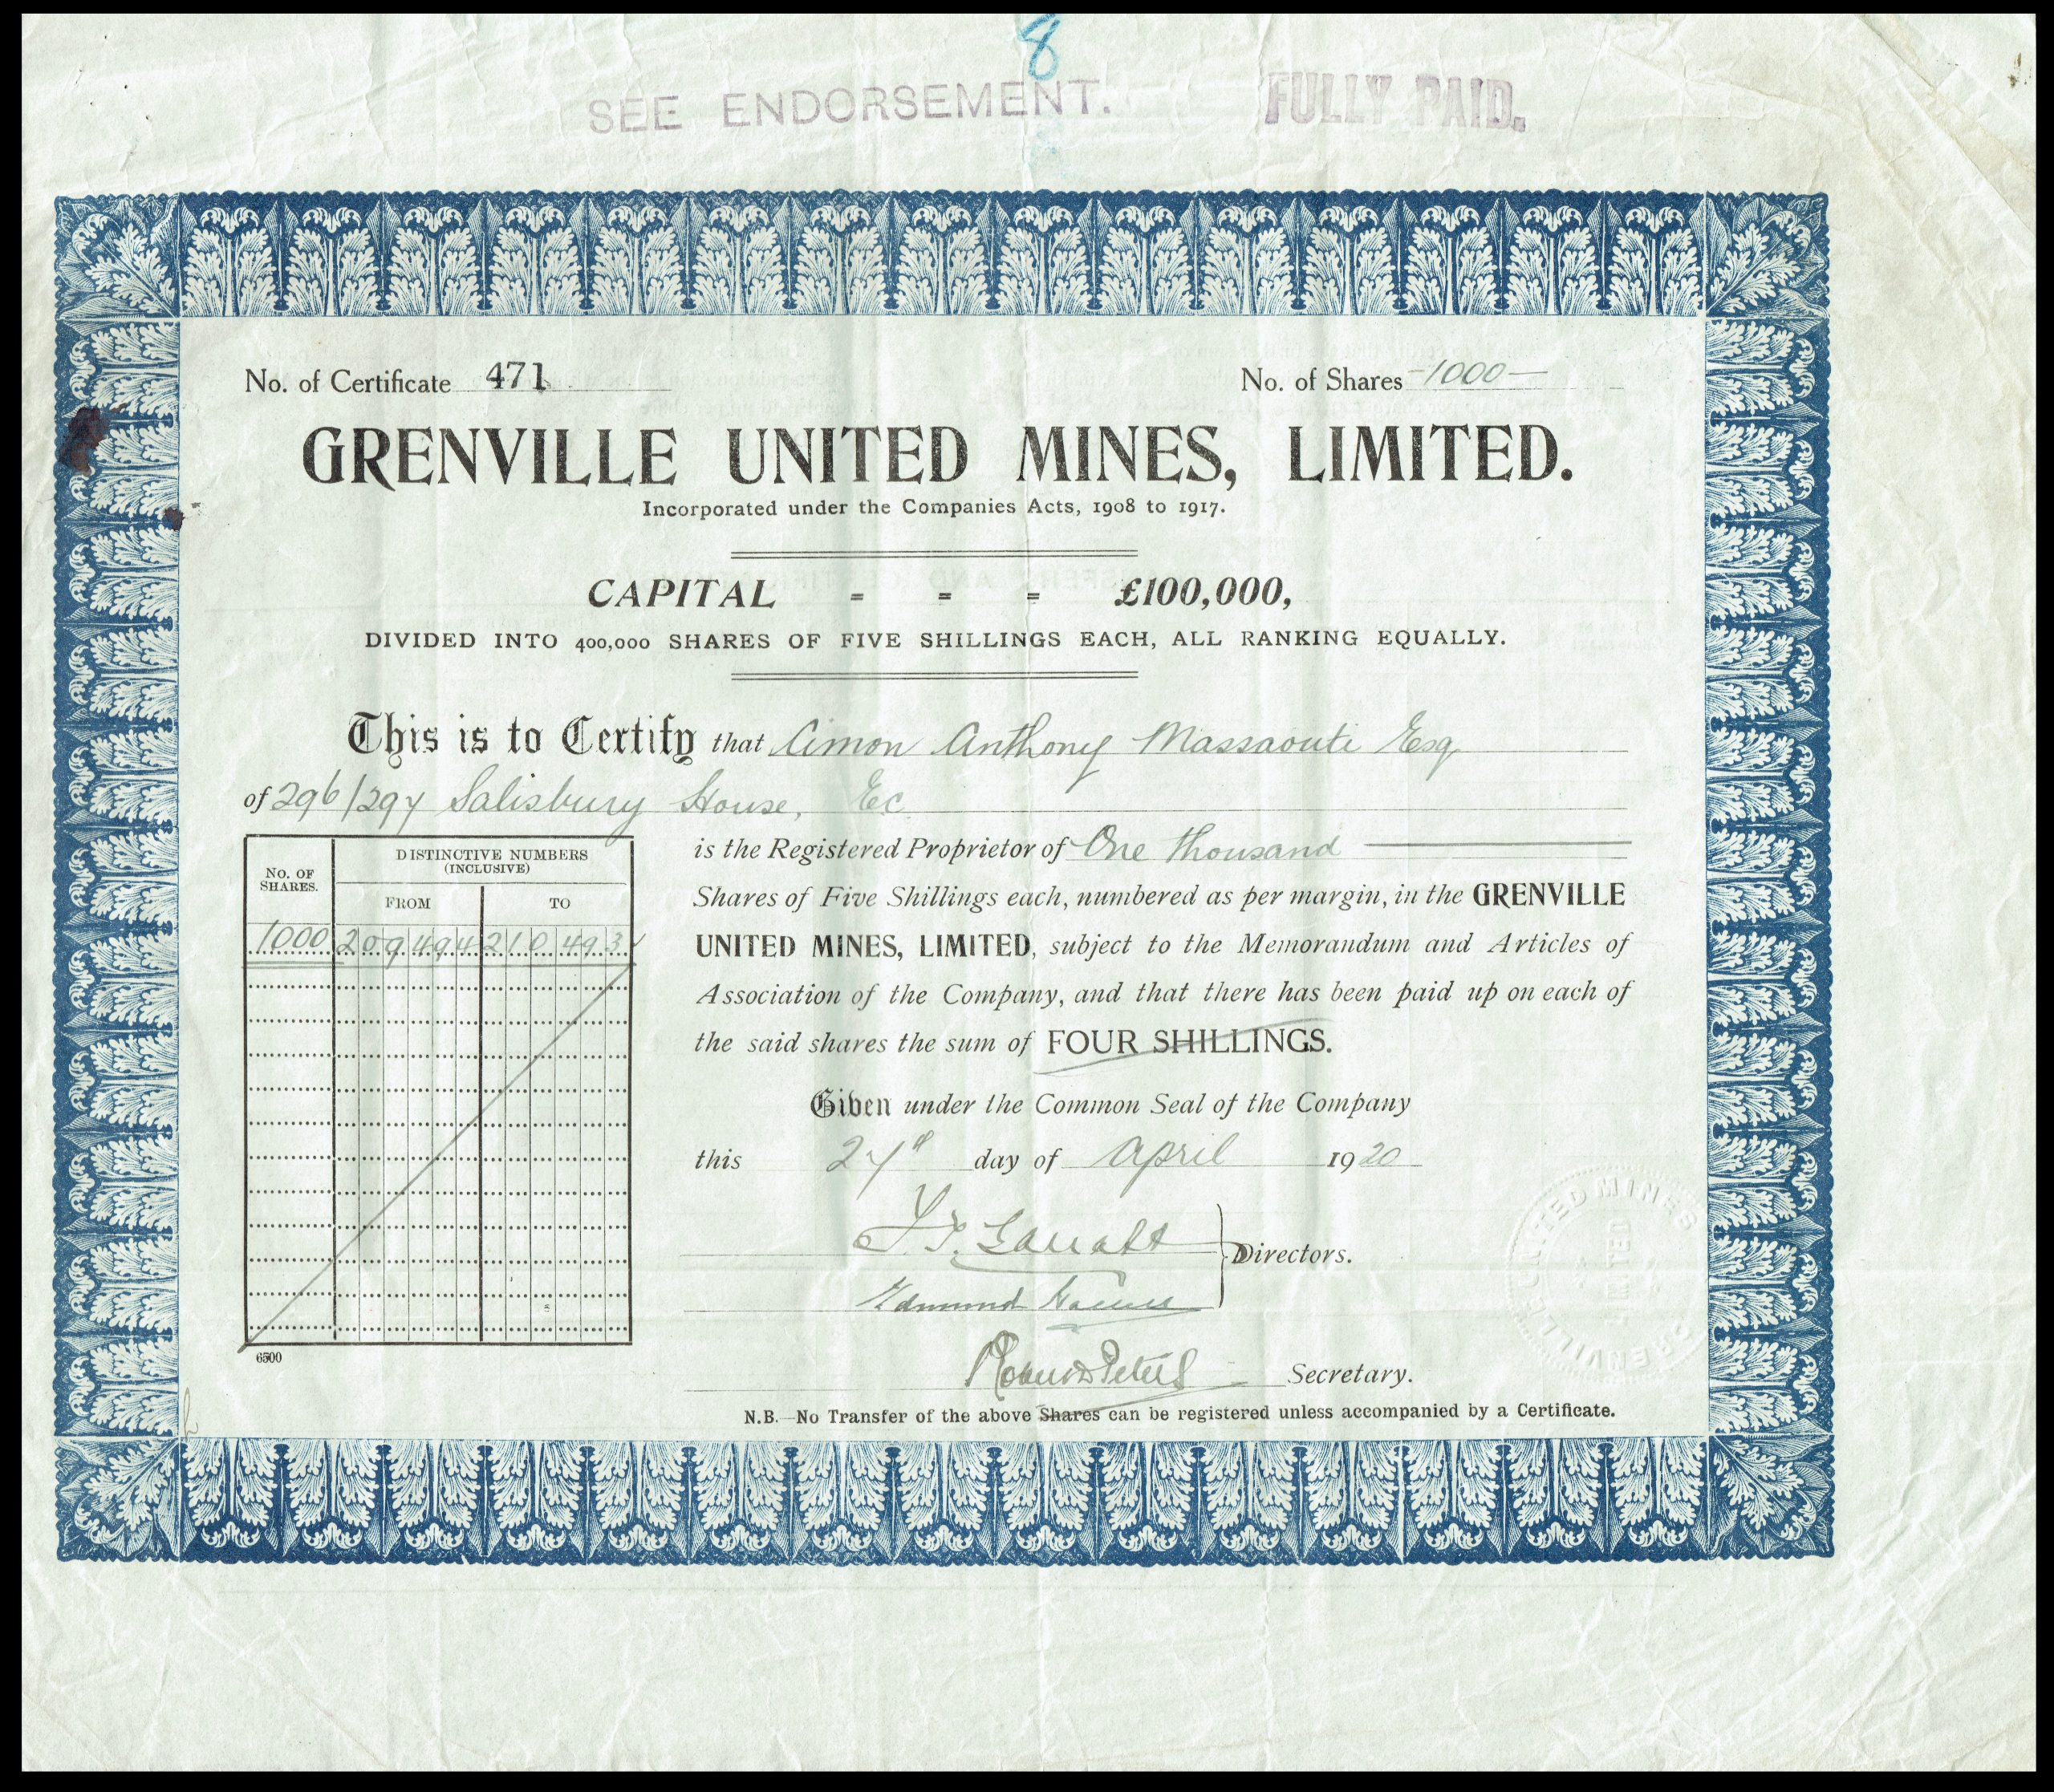 8
SEE ENDORSEMENT. FULLY PAID.
No. of Certificate 471 No. of Shares -1000-
GRENVILLE UNITED MINES, LIMITED.
Incorporated under the Companies Acts, 1908 to 1917.
CAPITAL - - - £100,000,
DIVIDED INTO 400,000 SHARES OF FIVE SHILLINGS EACH, ALL RANKING EQUALLY.
This is to Certify that Anthony Esq
of 296/297 Salisbury House, Ec
NO. OF SHARES.
DISTINCTIVE NUMBERS
(INCLUSIVE)
FROM TO
1000 209494 210493
6500
is the Registered Proprietor of One Thousand
Shares of Five Shillings each, numbered as per margin, in the GRENVILLE
UNITED MINES, LIMITED, subject to the Memorandum and Articles of
Association of the Company, and that there has been paid up on each of
the said shares the sum of FOUR SHILLINGS.
Given under the Common Seal of the Company
this 27th day of April 1920
Directors.
Edmund
Peters Secretary.
N.B.—No Transfer of the above Shares can be registered unless accompanied by a Certificate.
GRENVILLE UNITED MINES
LIMITED